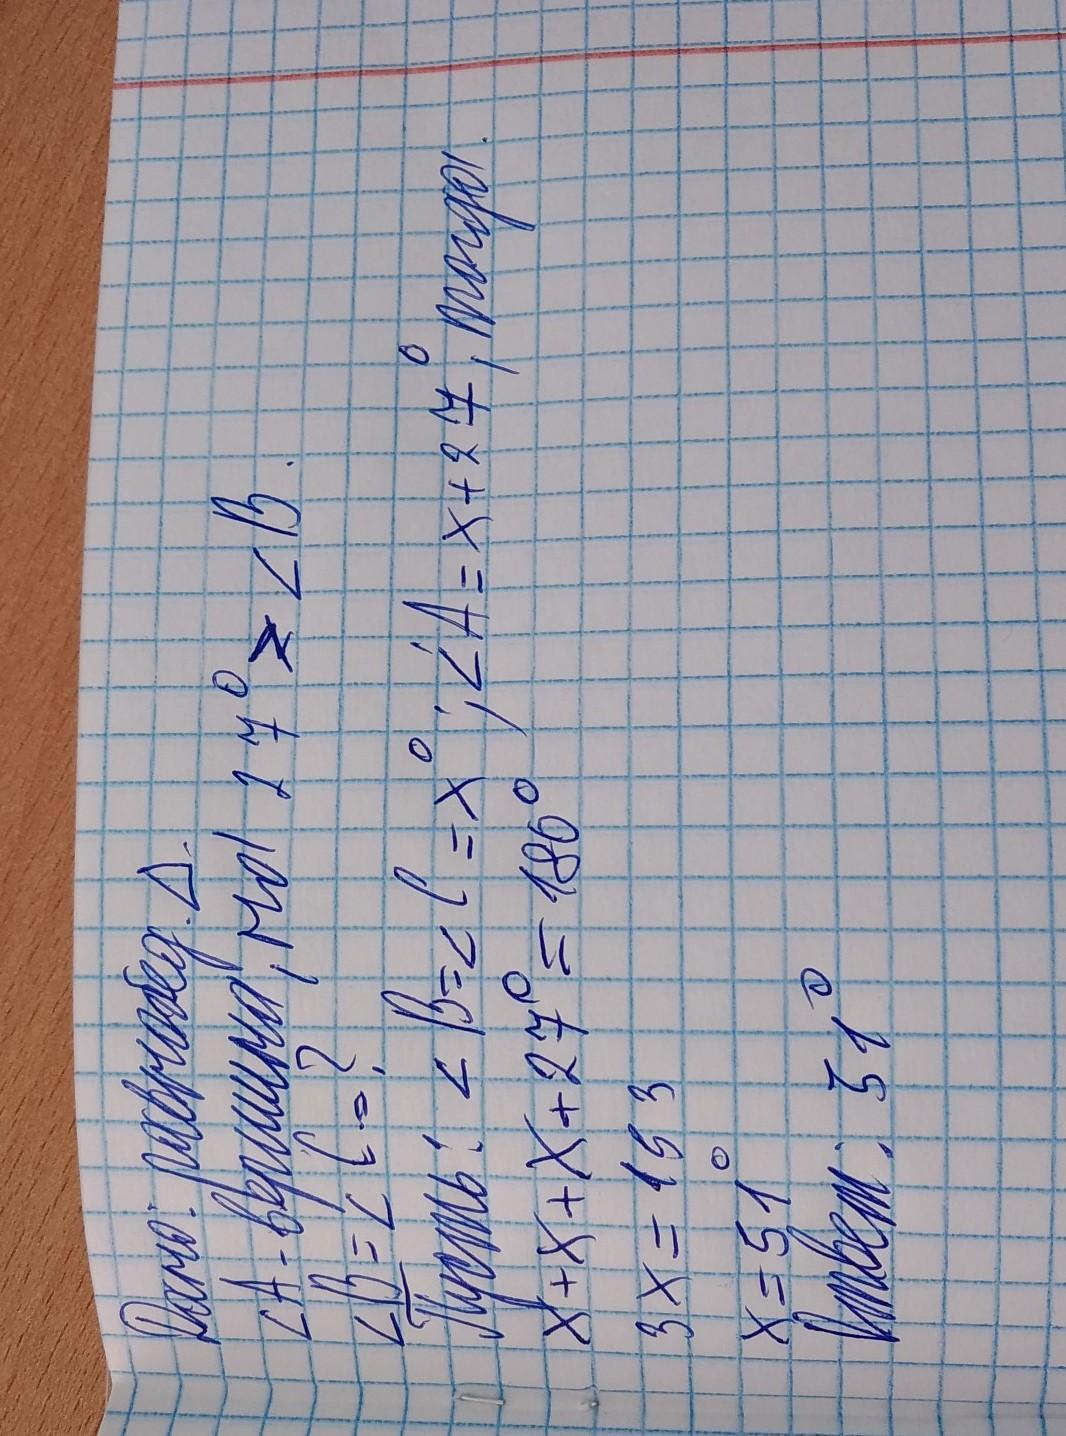 Дано: равнобед. Δ.
∠A - вершина, на 27° > ∠B.
∠B = ∠C = ?
Пусть: ∠B = ∠C = x°; ∠A = x + 27°, тогда.
x + x + x + 27° = 180°
3x = 153
x = 51°
Ответ: 51°